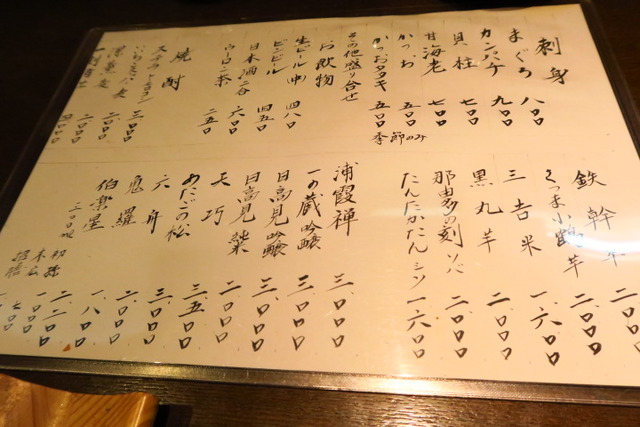 刺身
まぐろ 八〇〇
カンパチ 九〇〇
貝柱 七〇〇
甘海老 七〇〇
かつお 五〇〇
かつおタタキ 五〇〇
季節のみ
その他盛り合せ
お飲物
生ビール(中) 四八〇
ビンビール 四五〇
日本酒二合 六〇〇
ウーロン茶 二五〇
焼酎
三〇〇〇
二〇〇〇
二〇〇〇
鉄幹 二〇〇〇
さつま小鶴 芋 二〇〇〇
三吉米 一、六〇〇
黒丸芋 二、〇〇〇
那由多の刻 ソバ 二、〇〇〇
たんたかたん シソ 一、六〇〇
浦霞禅 三、〇〇〇
一の蔵 吟醸 三〇〇〇
日高見 吟醸 三、〇〇〇
日高見 二〇〇〇
天巧 三、五〇〇
あたごの松 三〇〇〇
六舟 二、〇〇〇
鬼羅 一、八〇〇
伯楽星 二、二〇〇